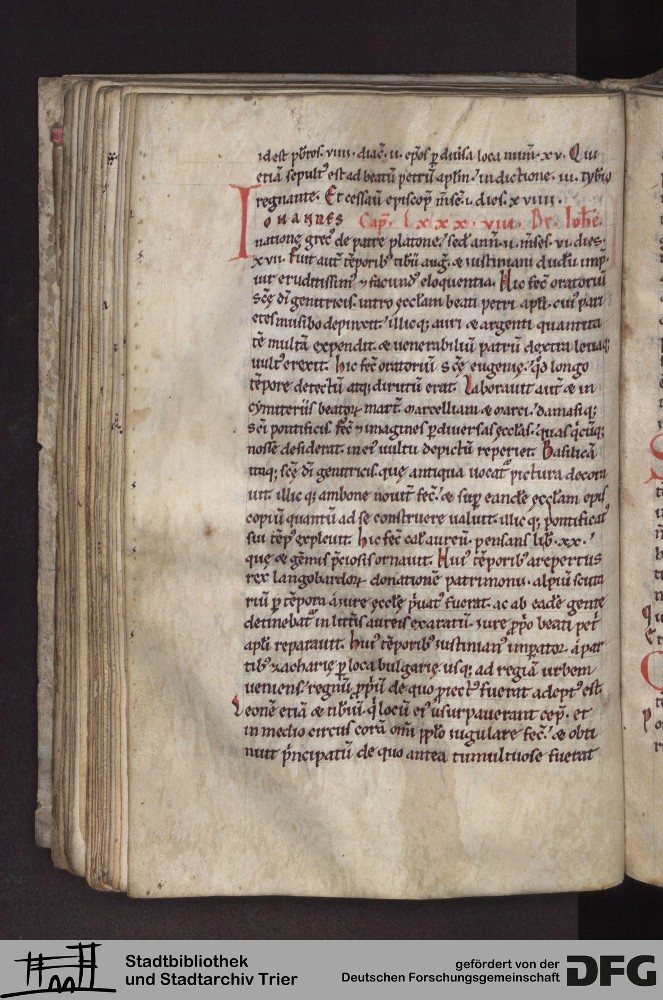 idest pbr̄os. viiii. diac̄. ii. ep̄os p̱ diuisa loca num̄. xv. Qui
etiā sepult᷒ est ad beatū petrū apl̄m. indictione. iii. tyb̄io
regnante. Et cessau̅ episcop̱ m̄se. i. dies. xviiii.
IOHANNES Cap̄. lxxx.viii. De Ioh̄e.
natione grec᷒ de patre platone. sed̄ ann̄. ii. m̄ses. vi. dies.
xvii. Fuit aut̄ tēporib᷒ tibii auḡ. & iustiniani dudū imp̱.
uir eruditissim᷒ & facund᷒ eloquentia. Hic fec̄ oratoriū
sc̄ę dī genitricis. intro ęccl̄am beati petri apl̄i. cui᷒ pari
etes musibo depinxit. illicq; auri & argenti quantita
tē multā expendit. & uenerabiliū patrū dextra leuaq;
uult᷒ erexit. hic fec̄ oratoriū sc̄ę eugenię. qd̄ longo
tēpore detectū atq; dirutū erat. Laborauit aut̄ & in
cymiteriis beatoꝝ mart̄. marcelliani & marci. damasiq;
sc̄i pontificis. Fec̄ & imagines p̱ diuersas ęccl̄as. quas q̄cūq;
nosse desiderat. in eis uultū depictū reperiet. Basilicā
itaq; sc̄ę dī genitricis. quę antiqua uocat᷒ pictura decora
uit. illicq; ambone nouit̄ fec̄. & sup̱ eandē ęccl̄am epis
copiū quantū ad se construere ualuit. illicq; pontificat᷒
sui tēp᷒ expleuit. hic fec̄ cal̄ aureū. pensans lib̄. xx.
quę & gēmis p̄ciosis ornauit. Hui᷒ tēporib᷒ arepertus
rex langobardoꝝ donationē patrimonii. alpiū scuta
riū p̱ tēpora a iure ęccl̄ę p̄uat᷒ fuerat. ac ab eadē gente
detinebat᷒ in litt̄is aureis exaratū. iure p̱p̄o beati pet̄
apl̄i reparauit. hui᷒ tēporib᷒ iustinian᷒ imp̱ator. a par
tib᷒ zacharię p̱ loca bulgarię. usq; ad regiā urbem
ueniens. regnū p̱p̄iū de quo p̱iect᷒ fuerat adept᷒ est.
Leonē etiā & tib̄iū. q̄ locū ei᷒ usurpauerant cep̄. et
in medio circus corā om̄i pp̄lo iugulare fec̄. & obti
nuit p̄ncipatū de quo antea tumultuose fuerat
Stadtbibliothek
und Stadtarchiv Trier
gefördert von der
Deutschen Forschungsgemeinschaft
DFG